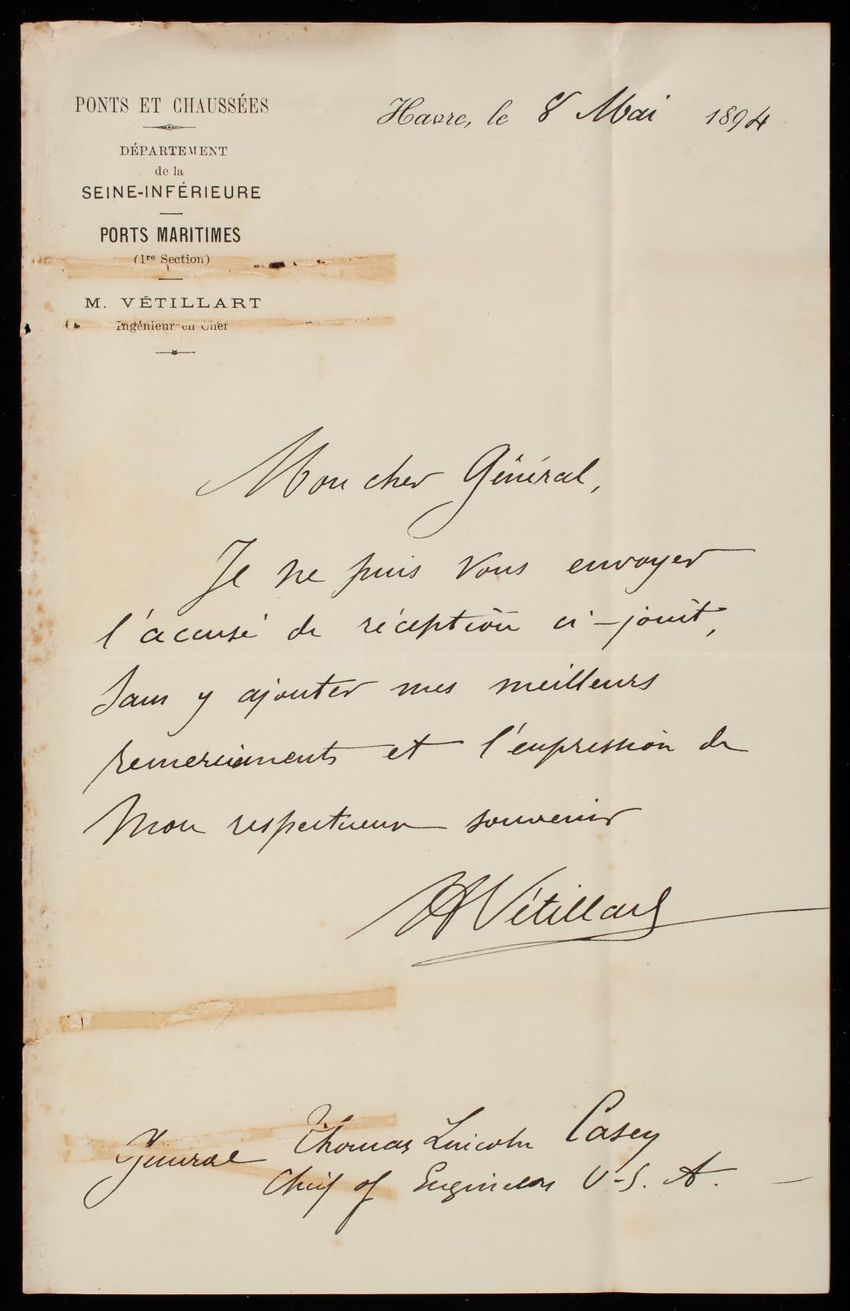 PONTS ET CHAUSSÉES
DÉPARTEMENT
de la
SEINE-INFÉRIEURE
PORTS MARITIMES
(1re Section)
M. VÉTILLART
Ingénieur en Chef
Havre, le 8 Mai 1894
Mon cher Général,
Je ne puis vous envoyer
l'accusé de réception ci-joint,
sans y ajouter mes meilleurs
remerciements et l'expression de
mon respectueux souvenir
H Vétillart
General Thomas Lincoln Casey
Chief of Engineers U-S. A.